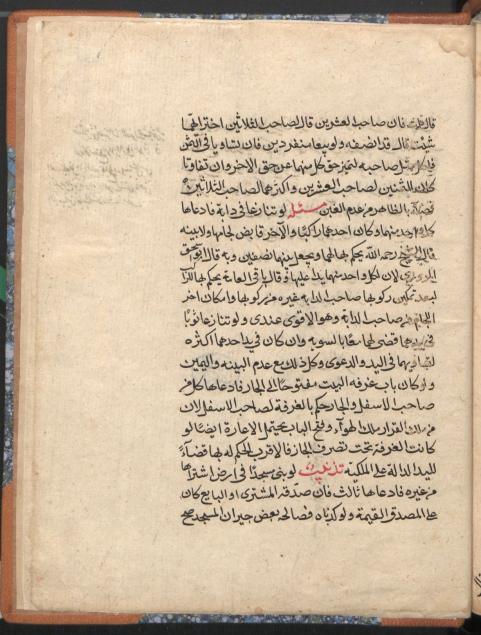 قال قلت فان صاحب العشرين قال لصاحب الثلاثين اختر ايهما
شئت قال قد انصفه ولو بيعا منفردين فان تساويا في الثمن
فلكل مثل صاحبه لتميز حق كل منهما عن حق الاخر وان تفاوتا
كان اقل الثمنين لصاحب العشرين واكثرهما لصاحب الثلاثين
قضاء بالظاهر من عدم الغبن مسئلة لو تنازعا في دابة فادعاها
كل واحد منهما وكان احدهما راكبا والاخر قابض لجامها ولا بينه
قال الشيخ رحمه الله يحكم بها لهما ويجعل بينهما نصفين وبه قال ابو اسحق
المروزي لان لكل واحد منهما يدا عليها وقال باقي العامة يحكم بها للراكب
لبعد تمكين ركوبها صاحب الدابه غيره من ركوبها وامكان اخذ
اللجام من صاحب الدابة وهو الاقوى عندي ولو تنازعا ثوبا
في يدهما قضى لهما معا بالسويه وان كان في يد احدهما اكثره
لتساويهما في اليد والدعوى وكل ذلك مع عدم البينه واليمين
ولو كان باب غرفه البيت مفتوحا الى الجار فادعاها كل من
صاحب الاسفل والجار حكم بالغرفة لصاحب الاسفل لان
من ملك القرار ملك الهواء وفتح الباب يحتمل الاعارة ايضا لو
كانت الغرفة تحت تصرف الجار فالاقرب الحكم له بها قضاء
لليد الدالة على الملكية تذنيب لو بنى مسجدا في ارض اشتراها
من غيره فادعاها ثالث فان صدقه المشتري او البايع كان
على المصدق القيمة ولو كذباه فصالحه بعض جيران المسجد صح